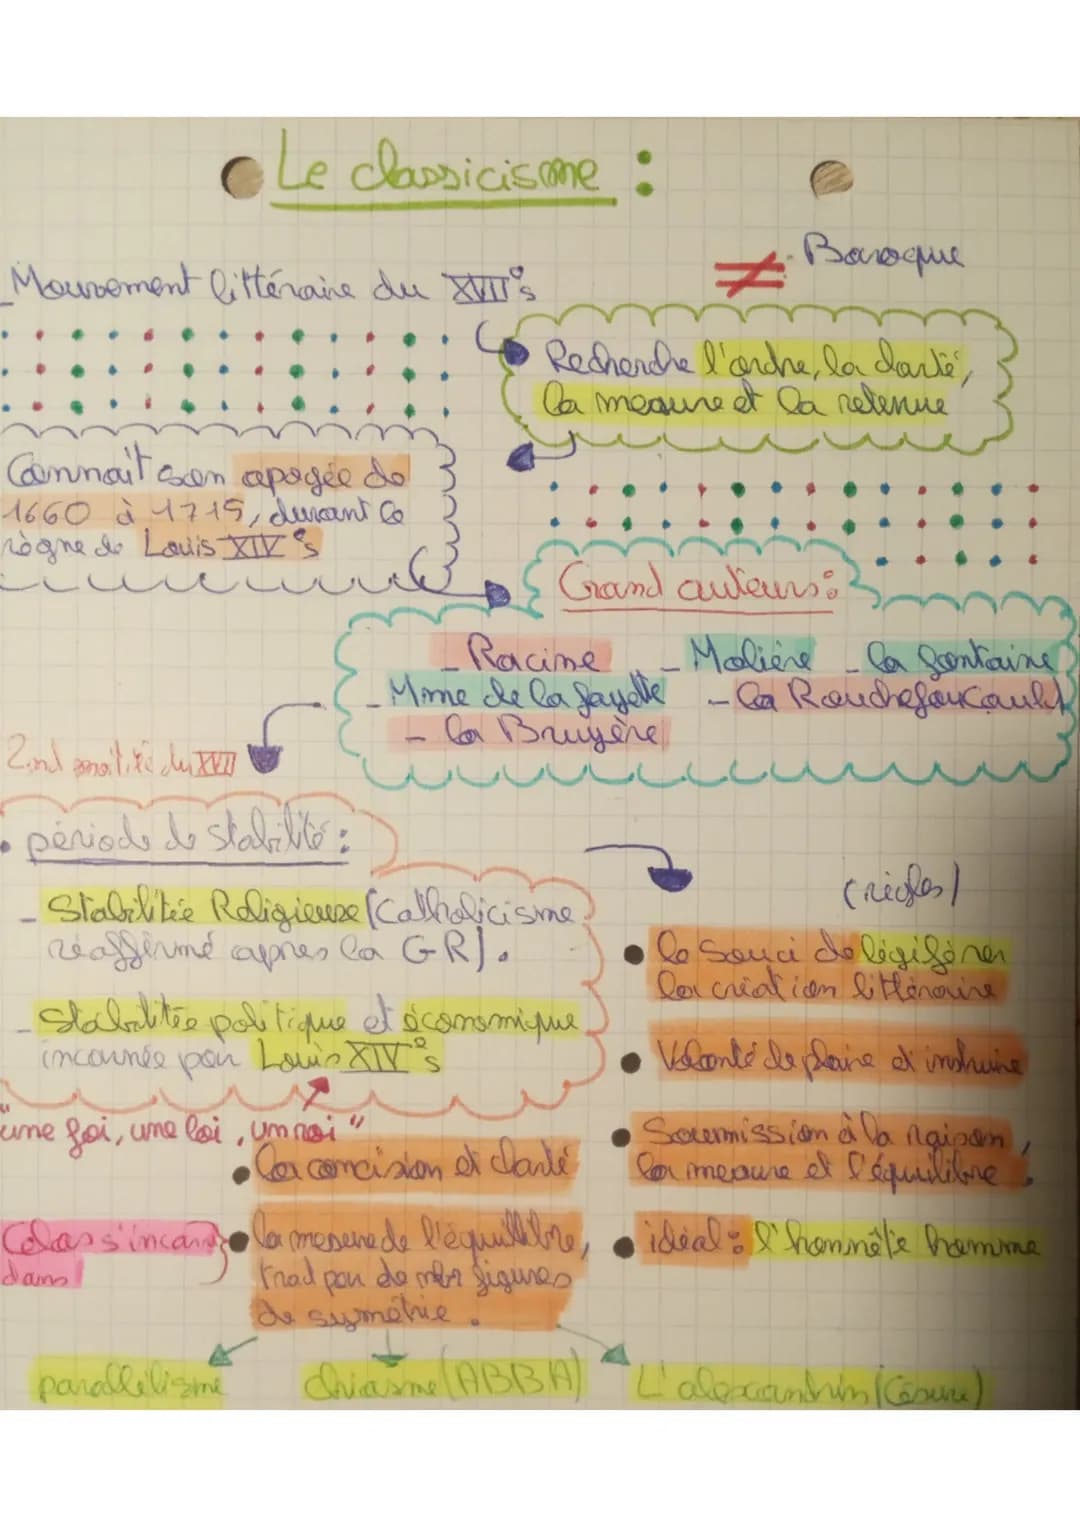 Le classicisme :
≠ Baroque
_ Mouvement littéraire du XVII°s
Recherche l'ordre, la clarté,
la mesure et la retenue
Connait son apogée de
1660 à 1715, durant le
règne de Louis XIV °s
Grand auteurs :
_ Racine _ Molière _ la fontaine
_ Mme de la fayette - la Rouchefoucault
- la Bruyère
2nd moitité du XVII
• période de stabilité :
- Stabilitée Religieuse (Catholicisme
réaffirmé apres la GR).
- Stabilitée politique et économique
incarnée par Louis XIV °s
"une foi, une loi, un roi"
(règles)
• le Souci de légiférer
la création littéraire
• Volonté de plaire et instruire
• Soumission à la raison,
la mesure et l'équilibre.
• idéal : l'honnête homme
• La concision et clarté
Cela s'incarne
dans
• la mesure de l'équilibre,
trad par de nbr figures
de symétrie.
parallélisme
chiasme (ABBA)
L'alexandrin (Césure)